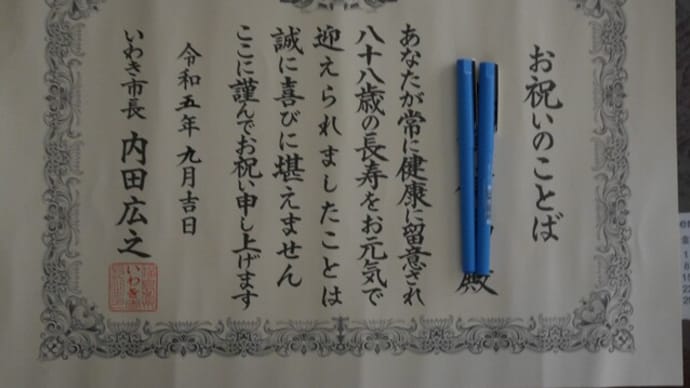 お祝いのことば
殿
あなたが常に健康に留意され
八十八歳の長寿をお元気で
迎えられましたことは
誠に喜びに堪えません
ここに謹んでお祝い申し上げます
令和五年九月吉日
いわき市長 内田広之